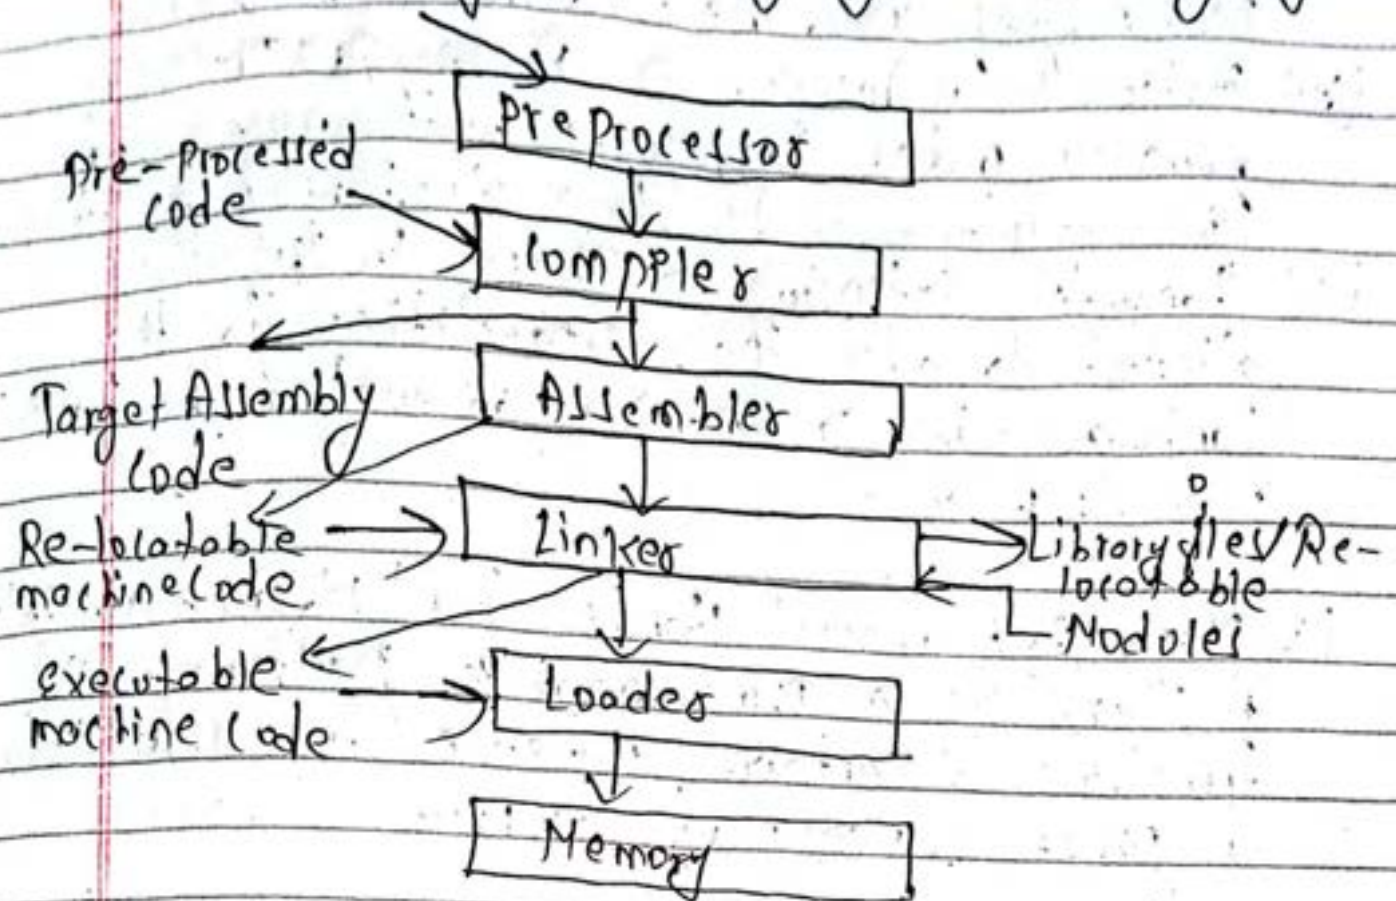 Preprocessor
Pre-Processed
code
Compiler
Target Assembly
Code
Assembler
Re-locatable
machine Code
Linker
Library files/Re-
locatable
Modules
Executable
machine Code
Loader
Memory